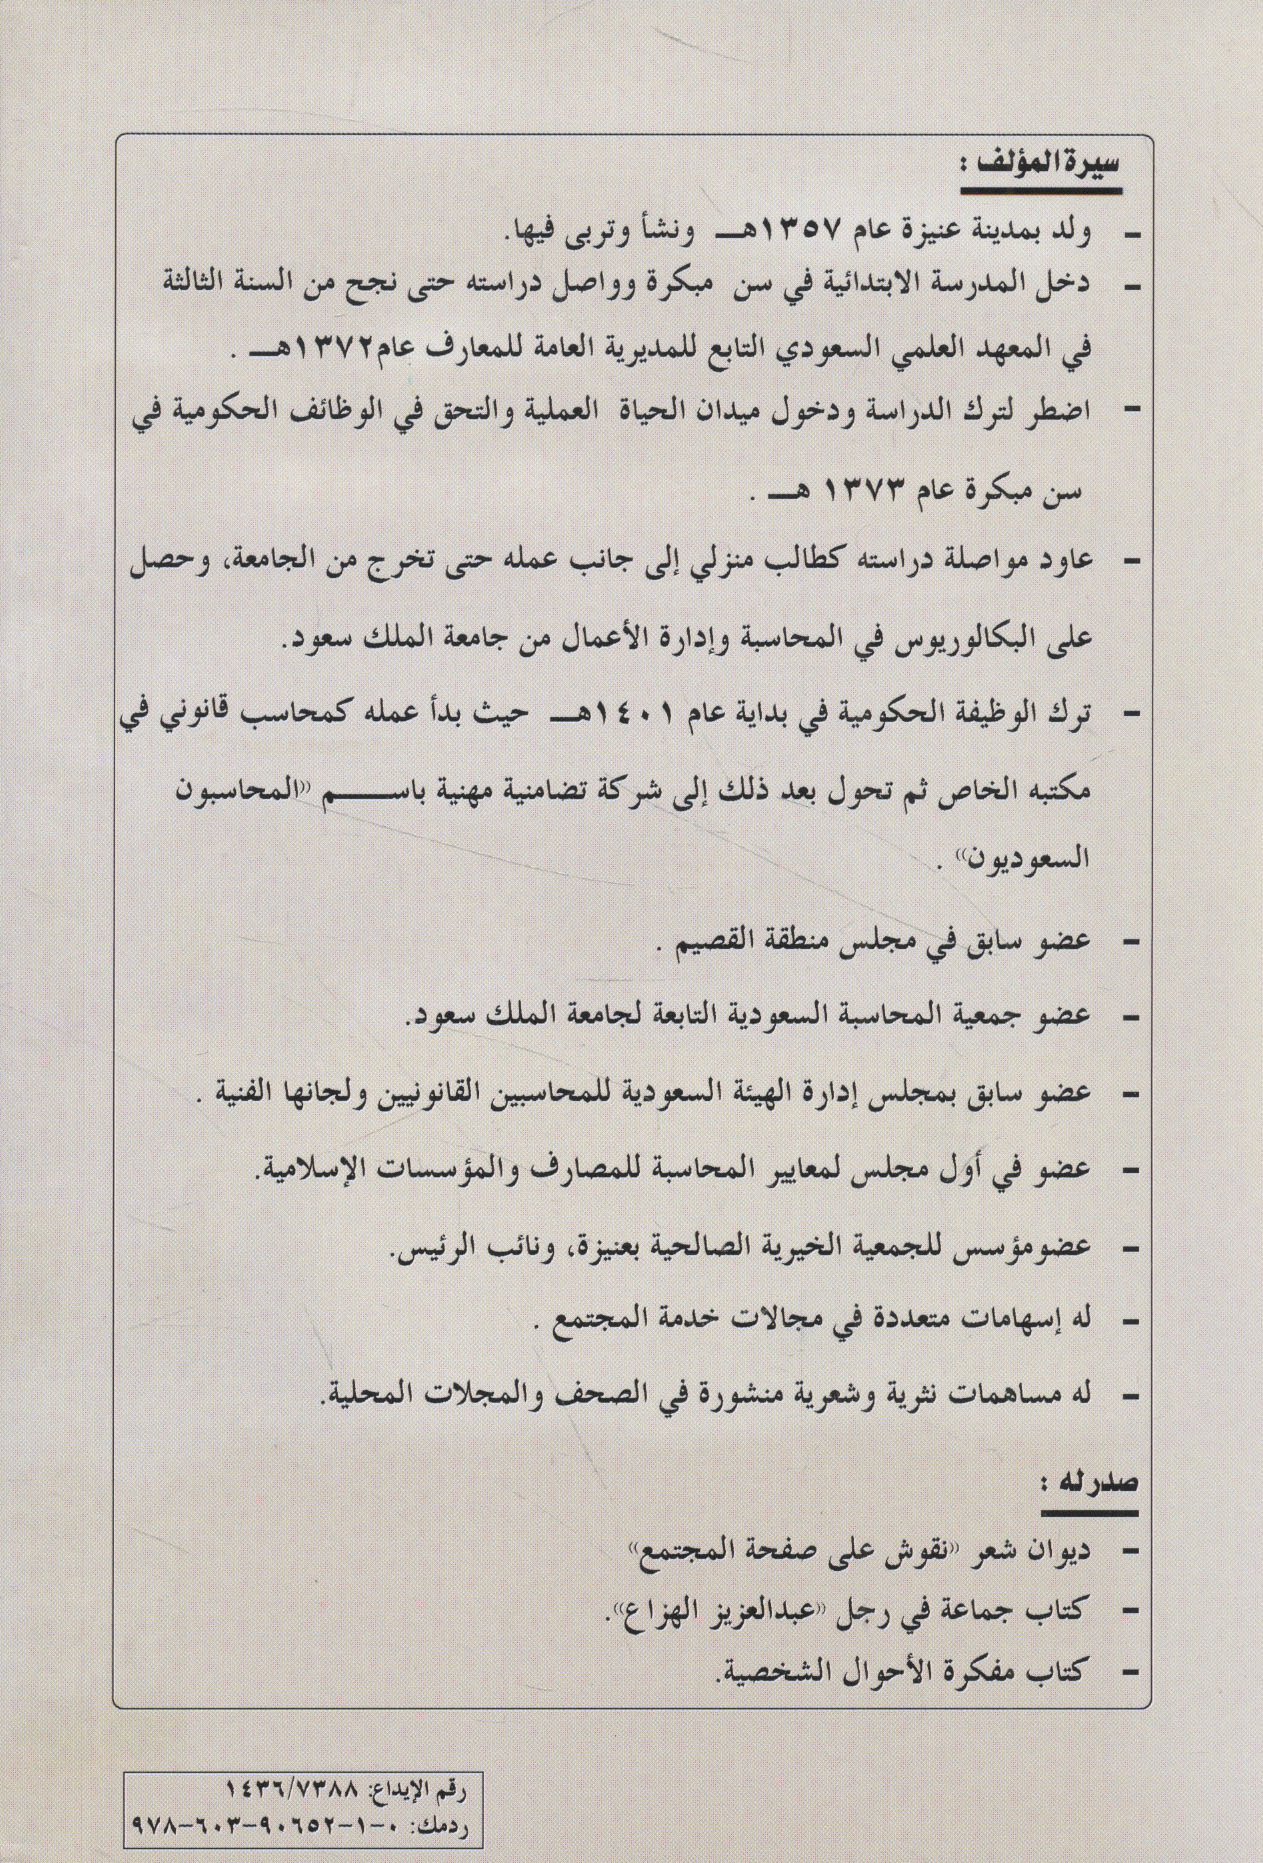 سيرة المؤلف :
- ولد بمدينة عنيزة عام ١٣٥٧هـ ونشأ وتربى فيها.
- دخل المدرسة الابتدائية في سن مبكرة وواصل دراسته حتى نجح من السنة الثالثة
في المعهد العلمي السعودي التابع للمديرية العامة للمعارف عام١٣٧٢هـ .
- اضطر لترك الدراسة ودخول ميدان الحياة العملية والتحق في الوظائف الحكومية في
سن مبكرة عام ١٣٧٣ هـ .
- عاود مواصلة دراسته كطالب منزلي إلى جانب عمله حتى تخرج من الجامعة، وحصل
على البكالوريوس في المحاسبة وإدارة الأعمال من جامعة الملك سعود.
- ترك الوظيفة الحكومية في بداية عام ١٤٠١هـ حيث بدأ عمله كمحاسب قانوني في
مكتبه الخاص ثم تحول بعد ذلك إلى شركة تضامنية مهنية باســـــم «المحاسبون
السعوديون» .
- عضو سابق في مجلس منطقة القصيم .
- عضو جمعية المحاسبة السعودية التابعة لجامعة الملك سعود.
- عضو سابق بمجلس إدارة الهيئة السعودية للمحاسبين القانونيين ولجانها الفنية .
- عضو في أول مجلس لمعايير المحاسبة للمصارف والمؤسسات الإسلامية.
- عضومؤسس للجمعية الخيرية الصالحية بعنيزة، ونائب الرئيس.
- له إسهامات متعددة في مجالات خدمة المجتمع .
- له مساهمات نثرية وشعرية منشورة في الصحف والمجلات المحلية.
صدر له :
- ديوان شعر «نقوش على صفحة المجتمع»
- كتاب جماعة في رجل «عبدالعزيز الهزاع».
- كتاب مفكرة الأحوال الشخصية.
رقم الإيداع: ١٤٣٦/٧٣٨٨
ردمك: ٠-١-٩٠٦٥٢-٦٠٣-٩٧٨